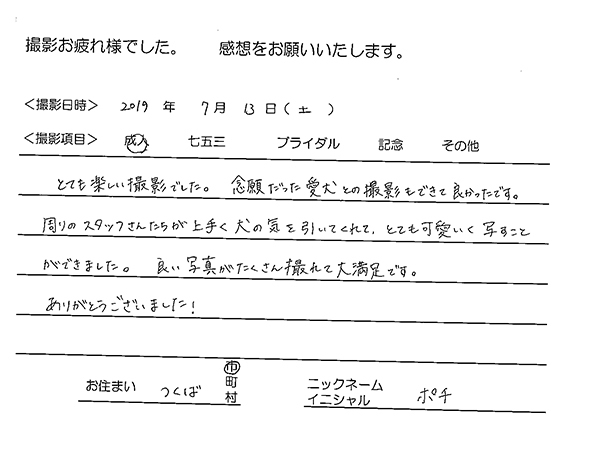 撮影お疲れ様でした。 感想をお願いいたします。
＜撮影日時＞ 2019 年 7月 13日(土)
＜撮影項目＞ 成人 七五三 ブライダル 記念 その他
とても楽しい撮影でした。 念願だった愛犬との撮影もできて良かったです。
周りのスタッフさんたちが上手く犬の気を引いてくれて、とても可愛いく写すこと
ができました。 良い写真がたくさん撮れて大満足です。
ありがとうございました!
お住まい つくば 市町村
ニックネーム
イニシャル ポチ